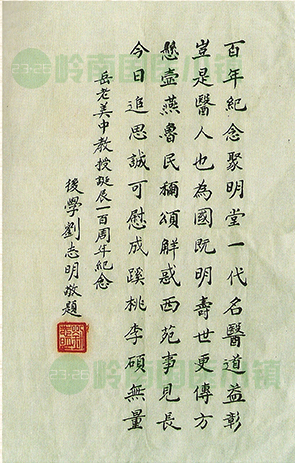 百年紀念聚明堂一代名醫道益彰
豈是醫人也為國既明壽世更傳方
懸壺燕魯民稱頌觧惑西苑事見長
今日追思誠可慰成蹊桃李碩無量
岳老美中教授誕辰一百周年紀念
後學劉志明敬題
23·26 岭南国医小镇
23·26 岭南国医小镇